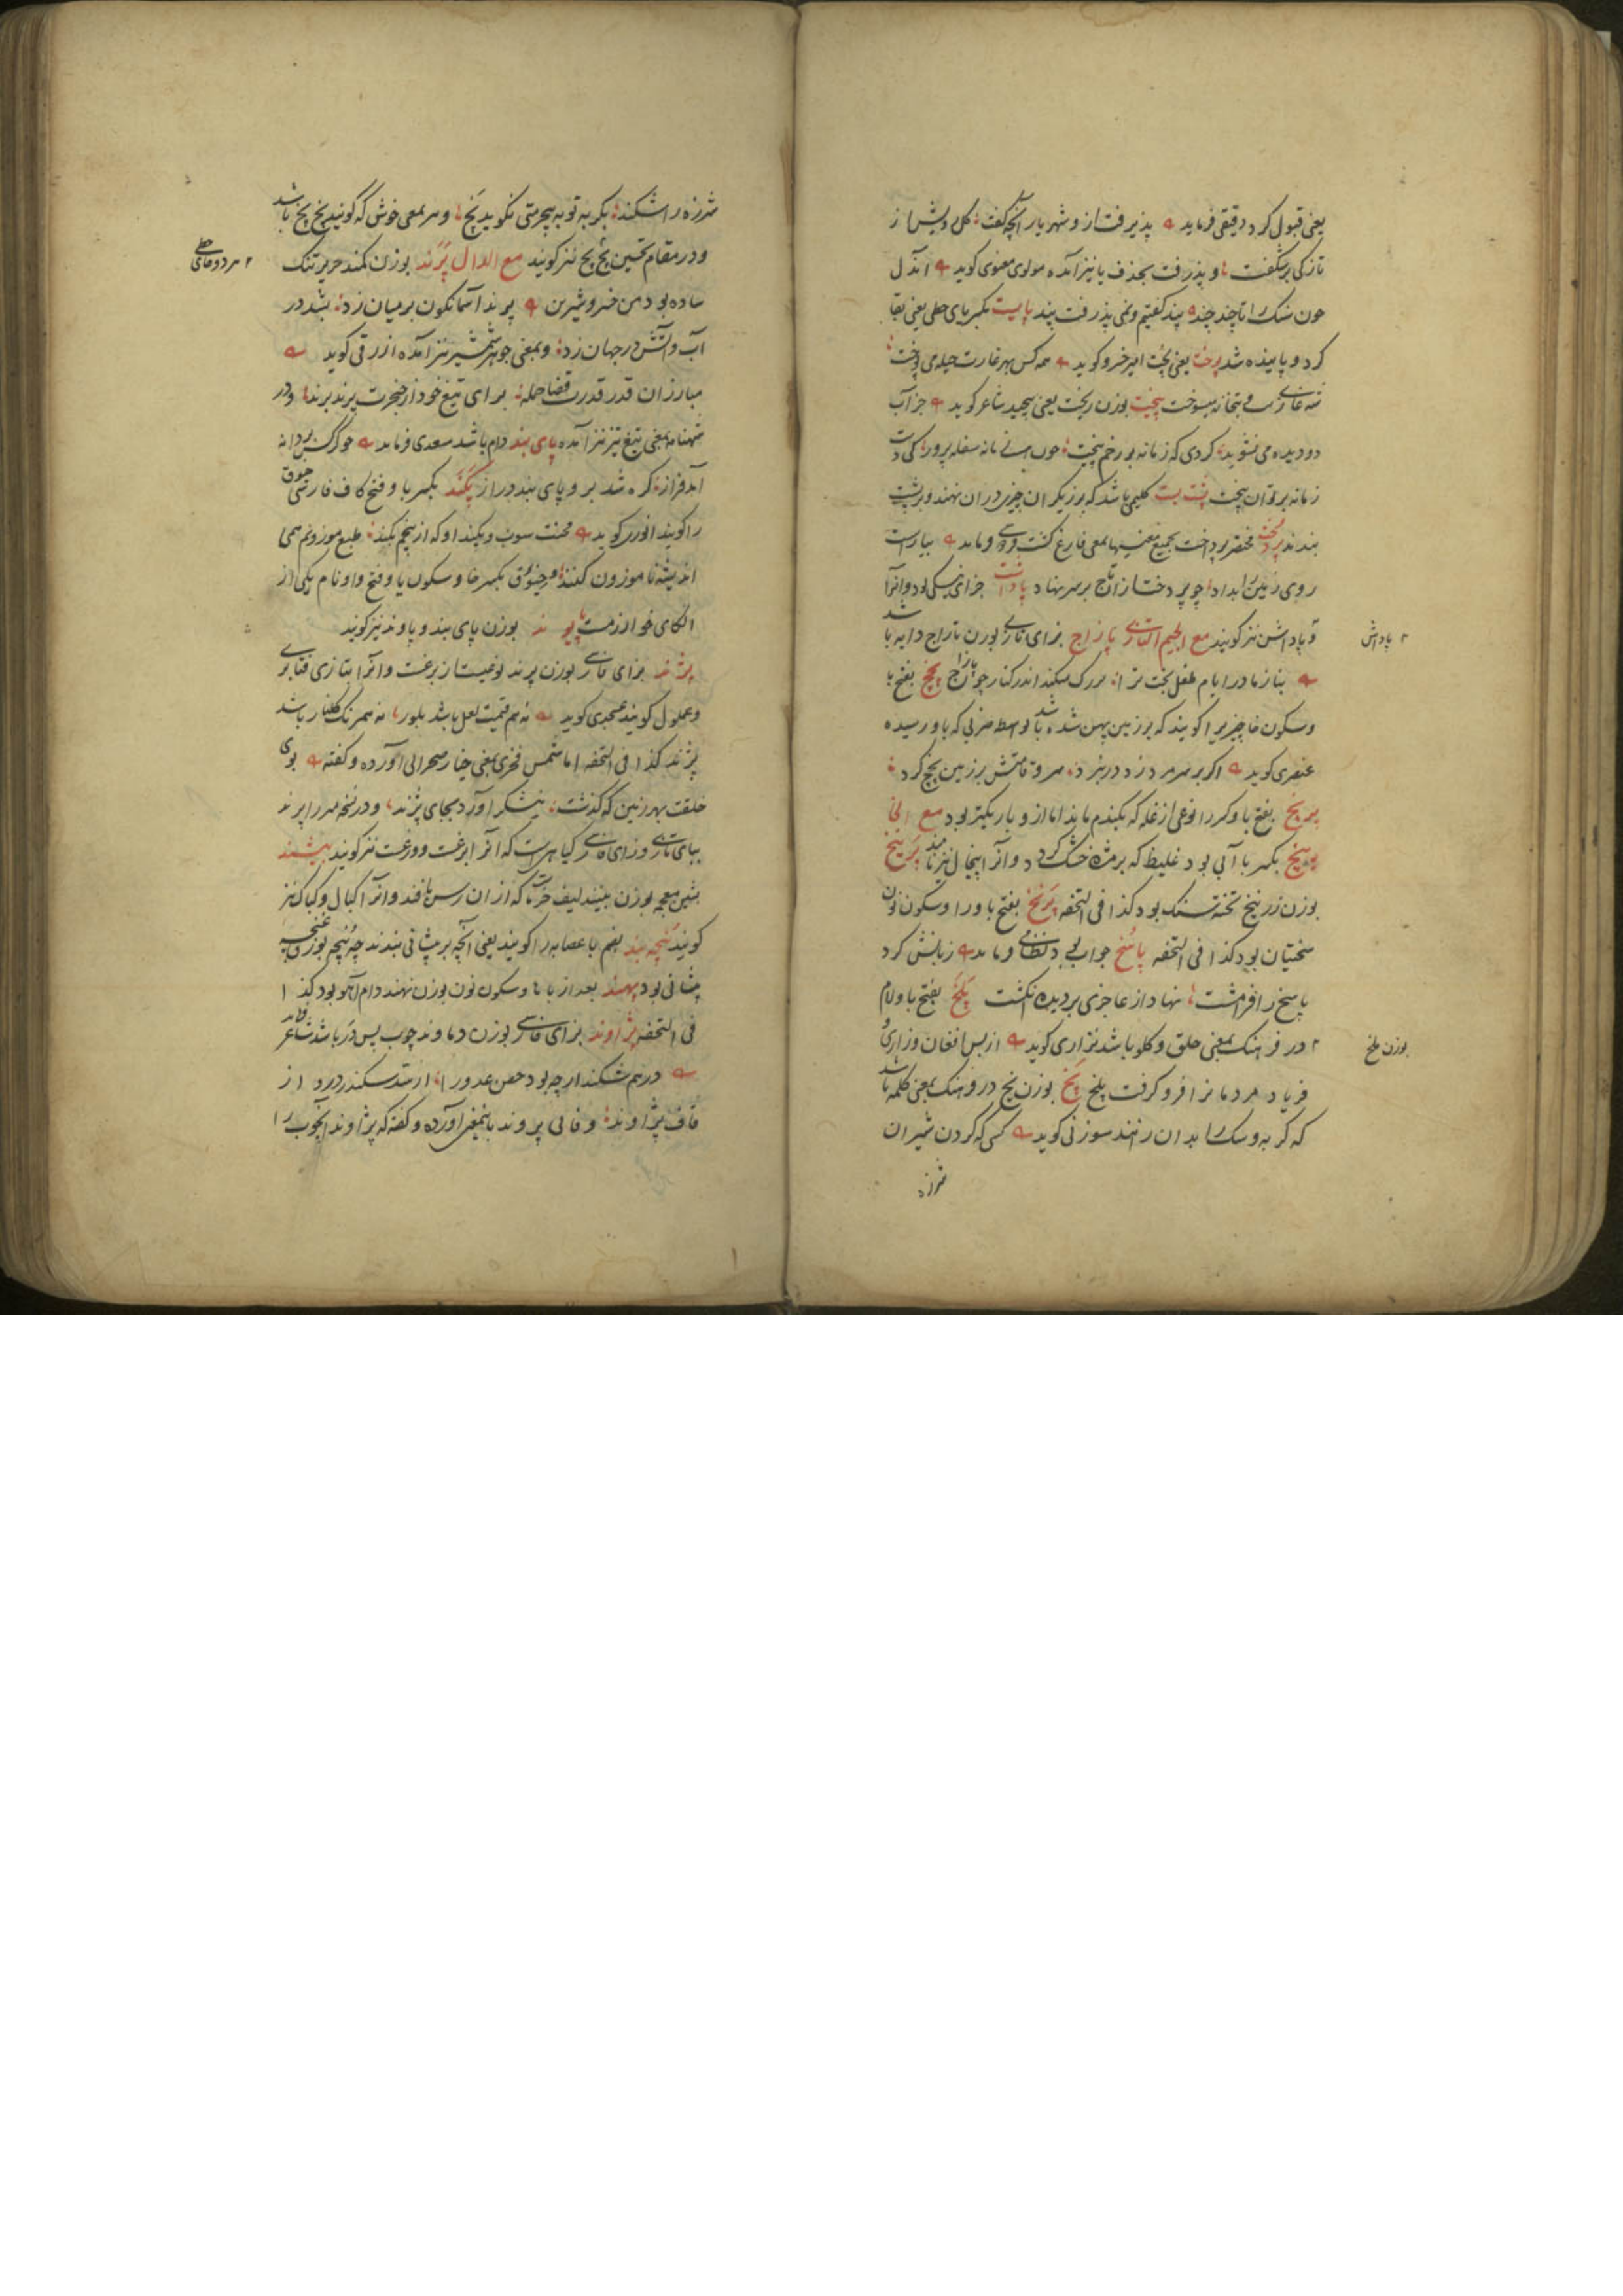 یعنی قبول کرد دقیقی فرماید پذیرفت از و شهریار آنچه گفت گل رویش از
تازکی برشکفت و پذرفت بحذف یا نیز آمده مولوی معنوی کوید آندل
چون سنک را تا چند چند پند کفتیم و نمی پذرفت پند پایست بکسر یای حطی یعنی بقا
کرد و پاینده شد پوخت یعنی پخت امیر خسرو کوید همه کس بهر غارت حیله می پوخت
بتخانه میسوخت پیخت بوزن ریخت یعنی پیچید شاعر کوید جز آب
دو دیده می نشوید کردی که زمانه بر رخم پیخت چون زمانه سفله پرور کی دست
زمانه بر توان پیخت پشت بست کلیمی باشد که برزیکران چیزی در آن نهند و بر پشت
بندند پردخت مختصر پرداخت بجمیع معنیها بمعنی فارغ کشت فردوسی فرماید بیاراست
روی زمین را بداد چو پردخت از آن تاج بر سر نهاد پاداشت جزای نیکی بود و آنرا
پاداش نیز کویند مع الجیم التازی پازاج بزای تازی بوزن تاراج دایه باشد
پاداش
بناز مادر ایام طفل بخت ترا بزرک میکند اندر کنار چون پازاج پخج بفتح با
و سکون خا چیزیرا کویند که بر زمین پهن شده باشد بواسطه ضربی که باو رسیده
عنصری کوید اکر بر سر مرد زد در نبرد سر و قامتش بر زمین پخچ کرد
بفتح با و کسر را نوعی از غله که بکندم ماند اما از و باریکتر بود مع الخا
پیخ بکسر با آبی بود غلیظ که بر مژه خشک کردد و آنرا پیخال نیز نامند پرنیخ
بوزن زرنیخ تخته سنک بود کذا فی التحفه پرنخ بفتح با و را و سکون نون
سختیان بود کذا فی التحفه پاسخ جواب بود نظامی فرماید زبانش کرد
پاسخ را فرامشت نهاد از عاجزی بر دیده انکشت پلخ بفتح با و لام
در فرهنک بمعنی حلق و کلو باشد نزاری کوید از بس افغان و زاری و
بوزن ملخ
فریاد مردمانرا فرو کرفت پلخ پخ بوزن نخ در فرهنک بمعنی کلمه باشد
که کربه و سک را بدان رانند سوزنی کوید کسی که کردن شیران
شرزه
شرزه را شکند بکربه تو به بیحرمتی نکوید پخ و هم بمعنی خوش که کویند پخ پخ باشد
و در مقام تحسین بخ بخ نیز کویند مع الدال پرند بوزن کمند حریر تنک
ساده بود من خسرو شیرین پرند آسمانکون بر میان زد بشد در
آب و آتش در جهان زد و بمعنی جوهر شمشیر نیز آمده ازرقی کوید
مبارزان قدر قدرت قضا حمله برای تیغ خود از خنجرت پرند برند و در
شهنامه بمعنی تیغ تیز نیز آمده پای بند دام باشد سعدی فرماید چو کرکس بر دانه
آمد فراز کره شد بر و پای بند دراز پکند بکسر با و فتح کاف فارسی
را کویند انوری کوید محنت سوب و پکند او که از بیخم بکند طبع موزونم همی
اندیشه ناموزون کند بکسر خا و سکون یا و فتح واو نام یکی از
الکای خوارزمست بوزن پای بند و پاوند نیز کویند
پژند بزای فارسی بوزن پرند نوعیست از برغست و آنرا بتازی قثابری
و عملول کویند عسجدی کوید نه هم قیمت لعل باشد بلور نه همرنک کلنار باشد
پژند کذا فی التحفه اما شمس فخری بمعنی خیار صحرایی آورده و کفته بوی
خلقت بهر زمین که کذشت نیشکر آورد بجای پژند و در نسخه میرزا پرند
ببای تازی و زای فارسی کیاهیست که آنرا برغست و ورغست نیز کویند پیشند
بشین معجمه بوزن ببیند لیف خرما که از آن رسن بافند و آنرا کبال و کباک نیز
کویند پنجه بند بضم با عصابه را کویند یعنی آنچه بر پیشانی بندند چه پنجه بوزن غنچه
پیشانی بود پهند بعد از با ها و سکون نون بوزن نهند دام آهو بود کذا
فی التحفه پژاوند بزای فارسی بوزن دماوند چوب پس در باشد شاعر
در هم شکند ارچه بود حصن عدو را از سد سکندر در و از
قاف پژاوند و فانی پروند باینمعنی آورده و کفته که پژاوند آنچوب را